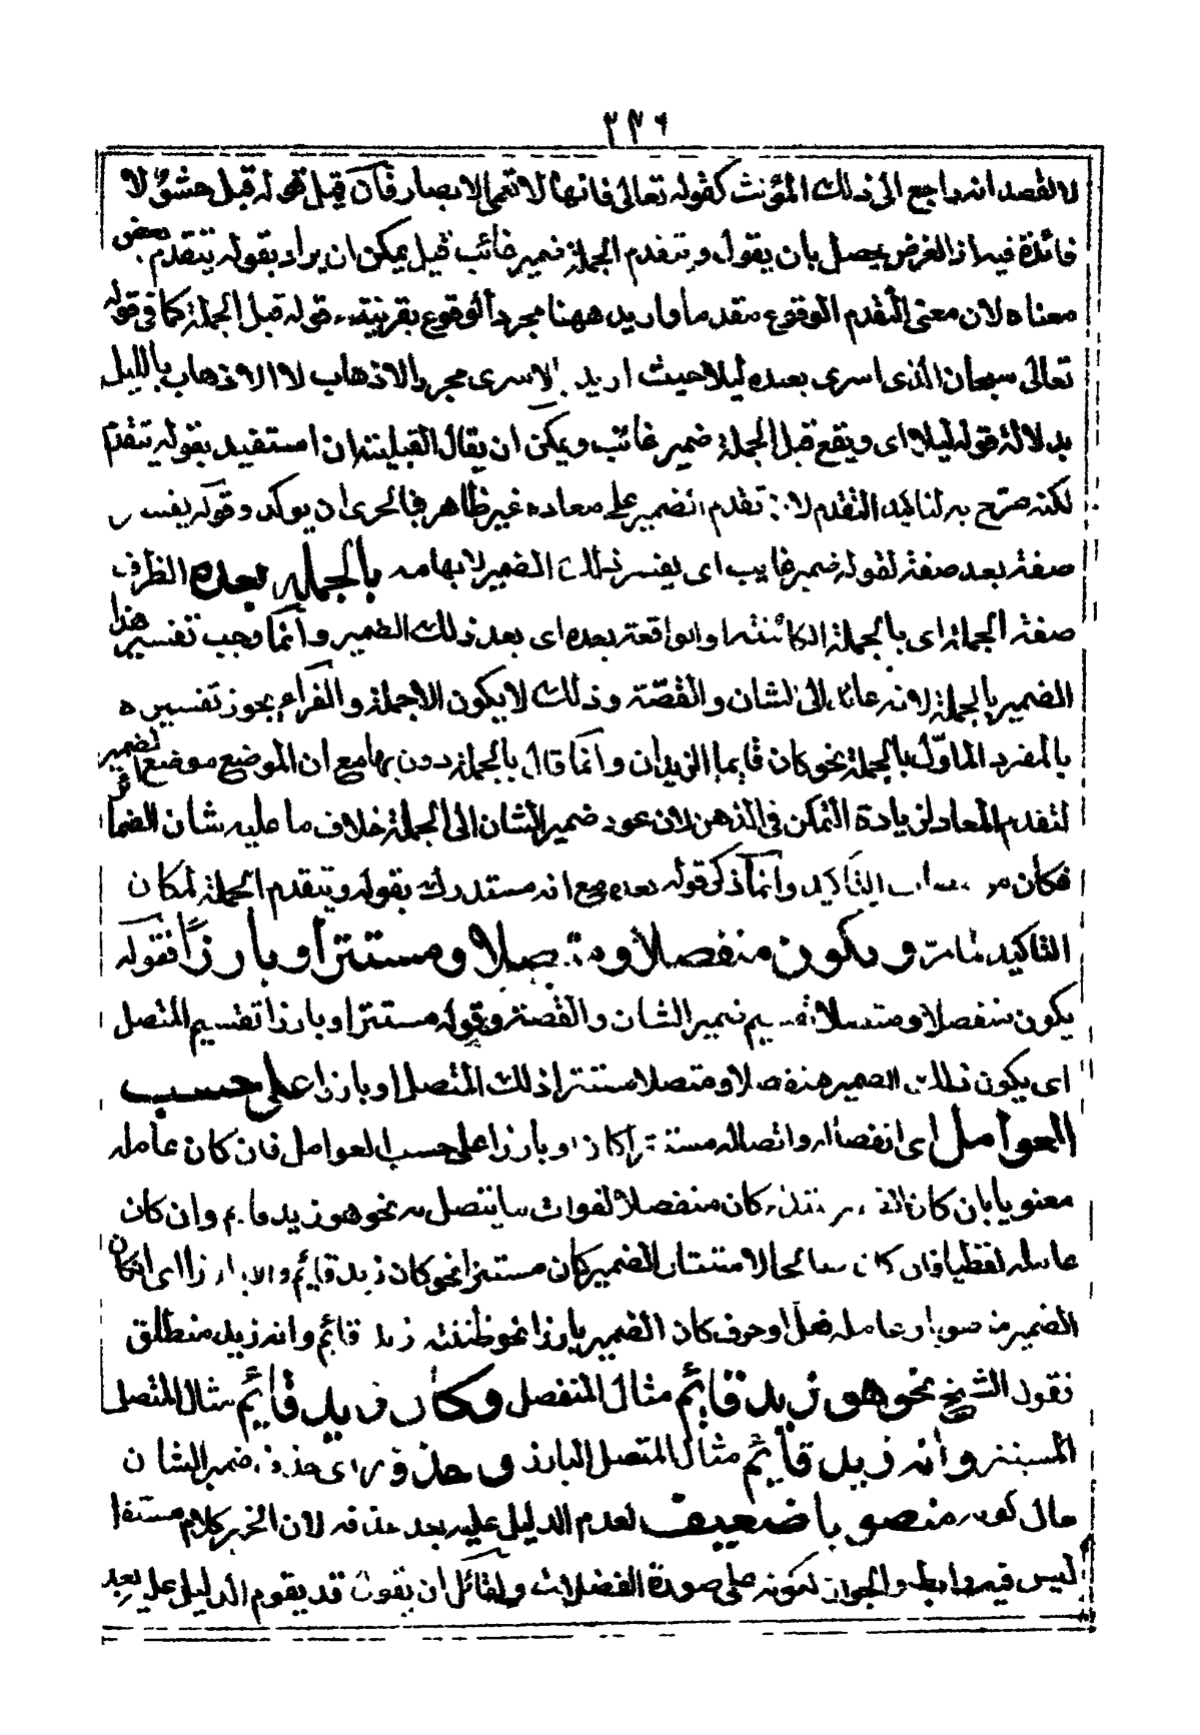 ٣٣٦
لا لقصد انه راجع الى ذلك المؤنث كقوله تعالى فانها لا تعمى الابصار فان قيل قوله قبل حشو لا
فائدة فيه اذ الغرض يحصل بان يقول ويتقدم الجملة ضمير غائب قيل يمكن ان يراد بقوله يتقدم بعض
معناه لان معنى التقدم الوقوع متقدما واريد ههنا مجرد الوقوع بقرينة قوله قبل الجملة كما فى قوله
تعالى سبحان الذى اسرى بعبده ليلا حيث اريد بالاسرى مجرد الاذهاب لا الاذهاب بالليل
بدلالة قوله ليلا اى ويقع قبل الجملة ضمير غائب ويمكن ان يقال القبلية ان استفيد بقوله يتقدم
لكنه صرح به لتاكيد التقدم لان تقدم الضمير على معاده غير ظاهر فبالحرى ان يوكد وقوله يفسر
صفة بعد صفة لقوله ضمير غايب اى يفسر ذلك الضمير لابهامه بالجملة بعده الظرف
صفة الجملة اى بالجملة الكائنة او الواقعة بعده اى بعد ذلك الضمير وانما وجب تفسير هذا
الضمير بالجملة لانه عائد الى الشان والقصة وذلك لا يكون الا جملة والفراء يجوز تفسيره
بالمفرد الماول بالجملة نحو كان قايما الزيدان وانما قال بالجملة دون بها مع ان الموضع موضع الضمير
لتقدم المعاد لزيادة التمكن فى الذهن لان عود ضمير الشان الى الجملة خلاف ما عليه شان الضمائر
فكان من التاكيد وانما ذكر قوله بعده مع انه مستدرك بقوله ويتقدم الجملة لمكان
التاكيد ويكون منفصلا ومتصلا ومستترا وبارزا فقوله
يكون منفصلا ومتصلا تقسيم ضمير الشان والقصة وقوله مستترا وبارزا تقسيم المتصل
اى يكون ذلك الضمير منفصلا ومتصلا مستترا ذلك المتصل او بارزا على حسب
العوامل اى انفصاله واتصاله مستترا كان او بارزا على حسب العوامل فان كان عامله
معنويا بان كان كان منفصلا لفوات ما يتصل به نحو هو زيد قايم وان كان
عامله لفظيا فان كان صالحا لاستتار الضمير كان مستترا نحو كان زيد قايم والا بارزا اى ان كان
الضمير منصوبا وعامله فعل او حرف كان الضمير بارزا نحو ظننته زيد قائم وانه زيد منطلق
نقول الشيخ نحو هو زيد قايم مثال المنفصل وكان زيد قايم مثال المتصل
المستتر وانه زيد قايم مثال المتصل البارز وحذفه اى حذف ضمير الشان
حال كونه منصوبا ضعيف لعدم الدليل عليه بعد حذفه لان الخبر كلام مستقل
ليس فيه رابط والجواز لكونه على صورة الفضلات ولقائل ان يقول قد يقوم الدليل عليه بعد